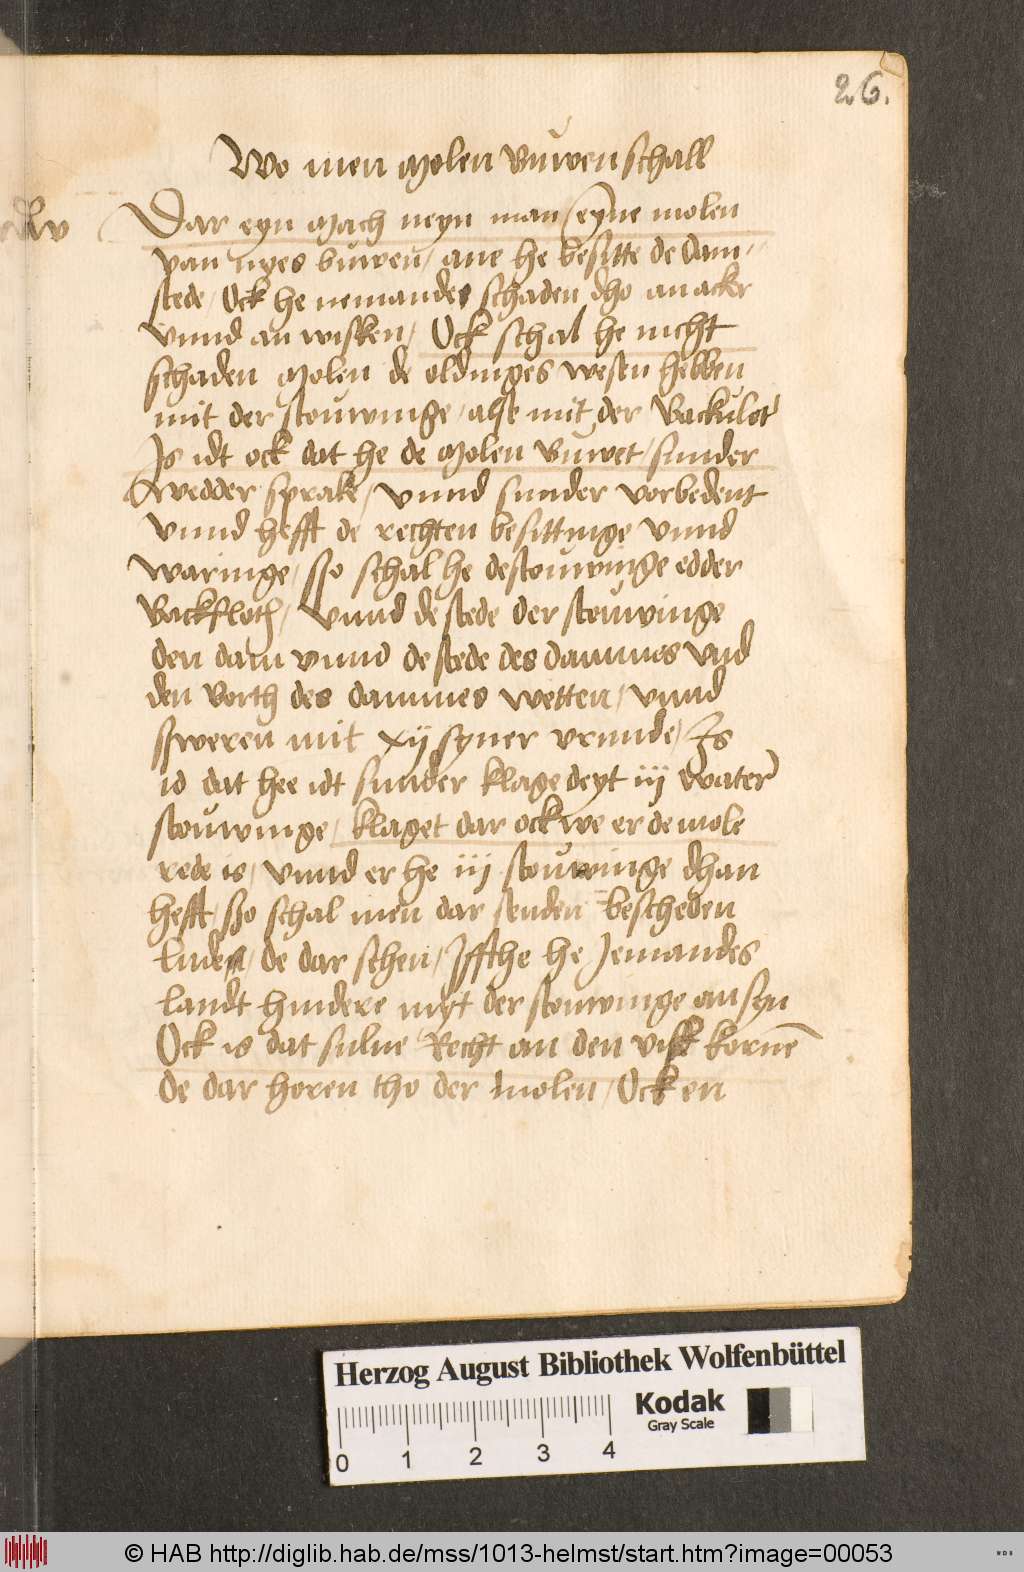 26.
Wo men Molen buwen schall
Dar eyn Mach neyn man / eyne molen
van nyes buwen / ane he besitte de dam
stede / Ock he nemandes schaden dho an acker
vnnd an wisken / Ock schal he nicht
schaden Molen de oldinges westn hebben
mit der stouwinge / alse mit der
Is idt ock dat he de Molen buwet / sunder
wedder sprake / vnnd sunder vorbedent
vnnd hefft de rechten besittinge vnnd
waringe / sso schal he de stouwinge edder
Backfloth / vnnd de stede der stouwinge
den dam vnnd de stede des dammes vnd
den vorth des dammes wetten / vnnd
sweren mit xij syner vrunde / Is
id dat hee idt sunder klage deyt iij water
stouwinge / klaget dar ock we er de mole
rede is / vnnd er he iij stouwinge dhan
hefft / sso schal men dar senden bescheden
lude / de dar schen / Iffthe he Jemandes
landt hindere myt der stouwinge an syn
Ock is dat sulue Recht an den visk kornen
de dar horen tho der molen / Ock en
Herzog August Bibliothek Wolfenbüttel
Kodak
Gray Scale
0 1 2 3 4
© HAB http://diglib.hab.de/mss/1013-helmst/start.htm?image=00053